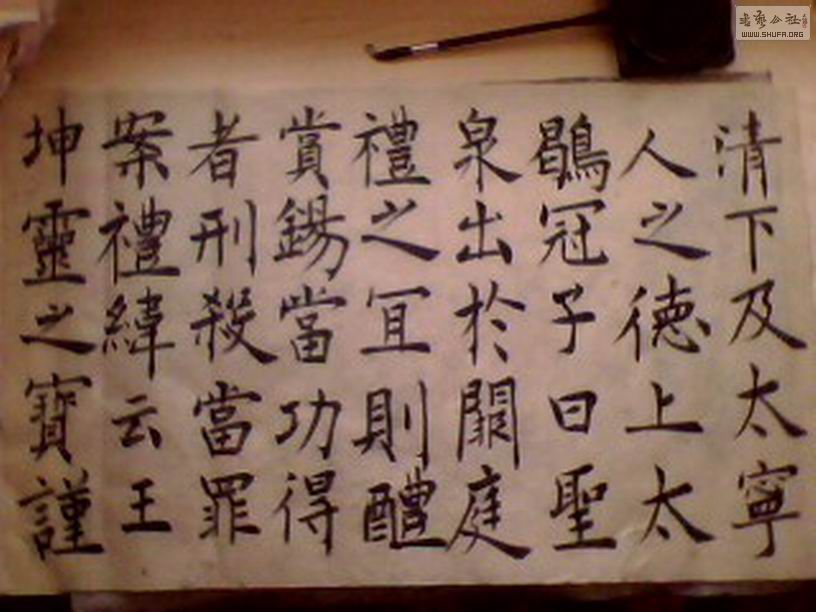 清下及太寧
人之德上太
鶡冠子曰聖
泉出於闕庭
禮之冝則醴
賞錫當功得
者刑殺當罪
案禮緯云王
坤靈之寶謹
書藝公社
WWW.SHUFA.ORG